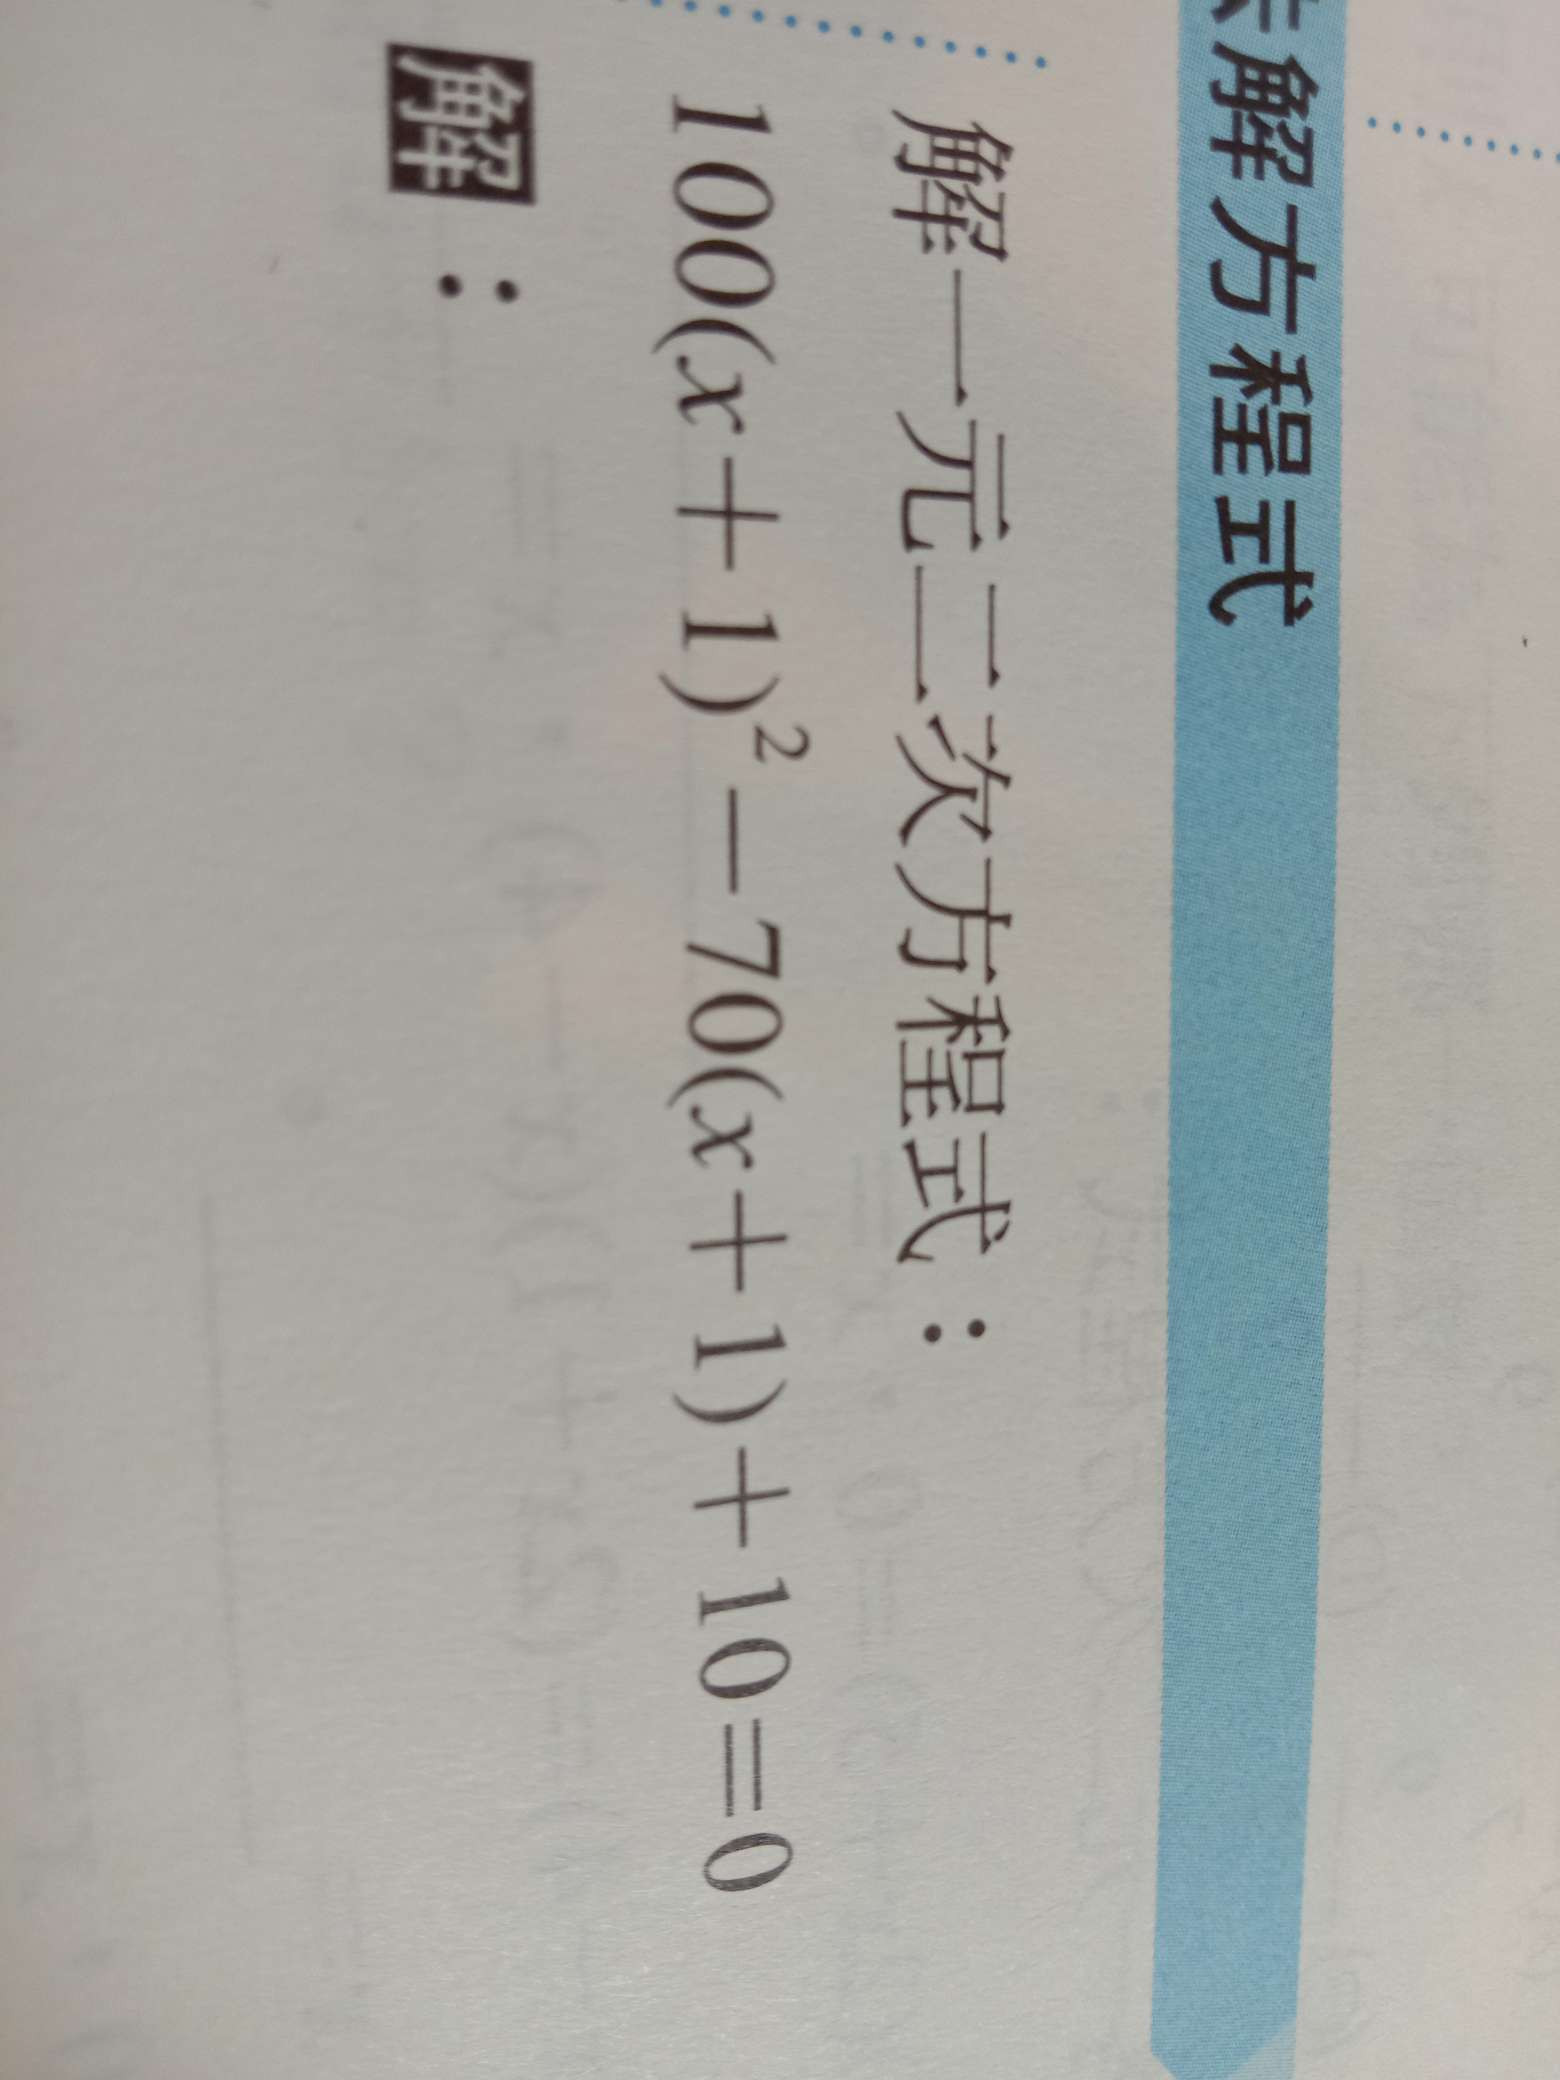 解方程式
解一元二次方程式：
100(x＋1)²－70(x＋1)＋10＝0
解：